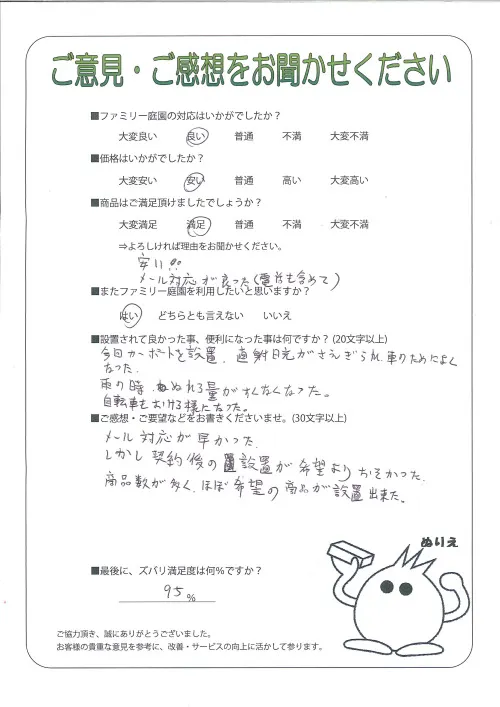 ご意見・ご感想をお聞かせください
■ファミリー庭園の対応はいかがでしたか？
大変良い 良い 普通 不満 大変不満
■価格はいかがでしたか？
大変安い 安い 普通 高い 大変高い
■商品はご満足頂けましたでしょうか？
大変満足 満足 普通 不満 大変不満
⇒よろしければ理由をお聞かせください。
安い!!
メール対応が良った(電話も含めて)
■またファミリー庭園を利用したいと思いますか？
はい どちらとも言えない いいえ
■設置されて良かった事、便利になった事は何ですか？(20文字以上)
今回カーポートを設置、直射日光がさえぎられ、車のためによく
なった。
雨の時、ぬれる量がすくなくなった。
自転車もおける様になった。
■ご感想・ご要望などをお書きくださいませ。(30文字以上)
メール対応が早かった。
しかし契約後の設置が希望よりおそかった。
商品数が多く、ほぼ希望の商品が設置出来た。
ぬりえ
■最後に、ズバリ満足度は何%ですか？
95%
ご協力頂き、誠にありがとうございました。
お客様の貴重な意見を参考に、改善・サービスの向上に活かして参ります。